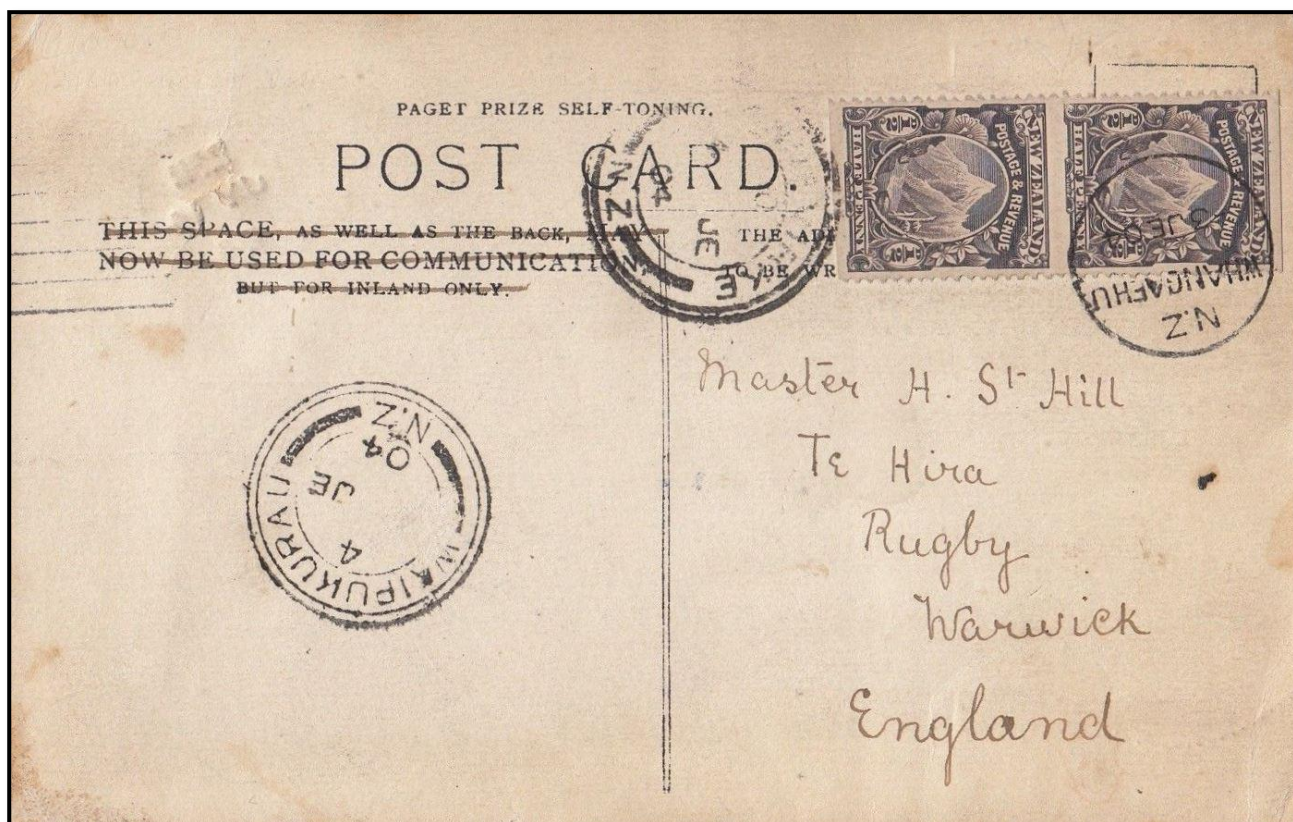 PAGET PRIZE SELF-TONING.
POST CARD.
THIS SPACE, AS WELL AS THE BACK, MAY
NOW BE USED FOR COMMUNICATION
BUT FOR INLAND ONLY.
THE
TO BE
NEW ZEALAND
POSTAGE & REVENUE
HALF PENNY
½
½
NEW ZEALAND
POSTAGE & REVENUE
HALF PENNY
½
½
04
JE
N.Z
3 JE 04
WHANGAEHU
N.Z
WAIPUKURAU
4
JE
04
N.Z
Master H. St Hill
Te Hira
Rugby
Warwick
England